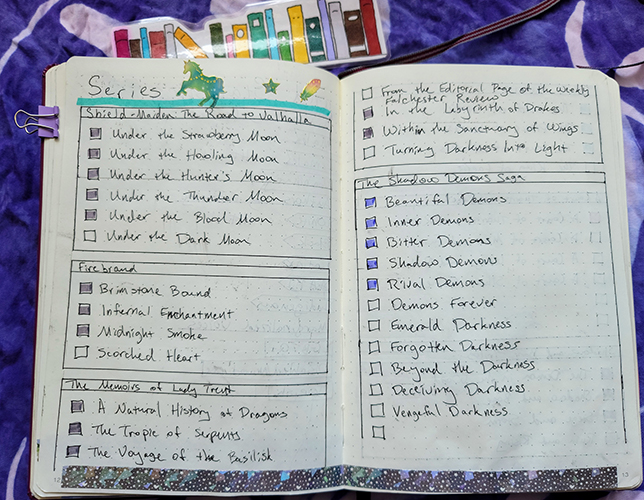 Series
Shield-Maiden The Road to Valhalla
Under the Strawberry Moon
Under the Howling Moon
Under the Hunter's Moon
Under the Thunder Moon
Under the Blood Moon
Under the Dark Moon
Firebrand
Brimstone Bound
Infernal Enchantment
Midnight Smoke
Scorched Heart
The Memoirs of Lady Trent
A Natural History of Dragons
The Tropic of Serpents
The Voyage of the Basilisk
12
From the Editorial Page of the Weekly
Falchester Review
In the Labyrinth of Drakes
Within the Sanctuary of Wings
Turning Darkness Into Light
The Shadow Demons Saga
Beautiful Demons
Inner Demons
Bitter Demons
Shadow Demons
Rival Demons
Demons Forever
Emerald Darkness
Forgotten Darkness
Beyond the Darkness
Deceiving Darkness
Vengeful Darkness
13